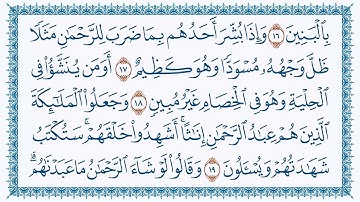 بِالْبَنِينَ ﴿١٦﴾ وَإِذَا بُشِّرَ أَحَدُهُم بِمَا ضَرَبَ لِلرَّحْمَٰنِ مَثَلًا
ظَلَّ وَجْهُهُ مُسْوَدًّا وَهُوَ كَظِيمٌ ﴿١٧﴾ أَوَمَن يُنَشَّؤُا فِي
الْحِلْيَةِ وَهُوَ فِي الْخِصَامِ غَيْرُ مُبِينٍ ﴿١٨﴾ وَجَعَلُوا الْمَلَٰئِكَةَ
الَّذِينَ هُمْ عِبَٰدُ الرَّحْمَٰنِ إِنَٰثًا ۚ أَشَهِدُوا خَلْقَهُمْ ۚ سَتُكْتَبُ
شَهَٰدَتُهُمْ وَيُسْـَٔلُونَ ﴿١٩﴾ وَقَالُوا لَوْ شَاءَ الرَّحْمَٰنُ مَا عَبَدْنَٰهُم ۗ